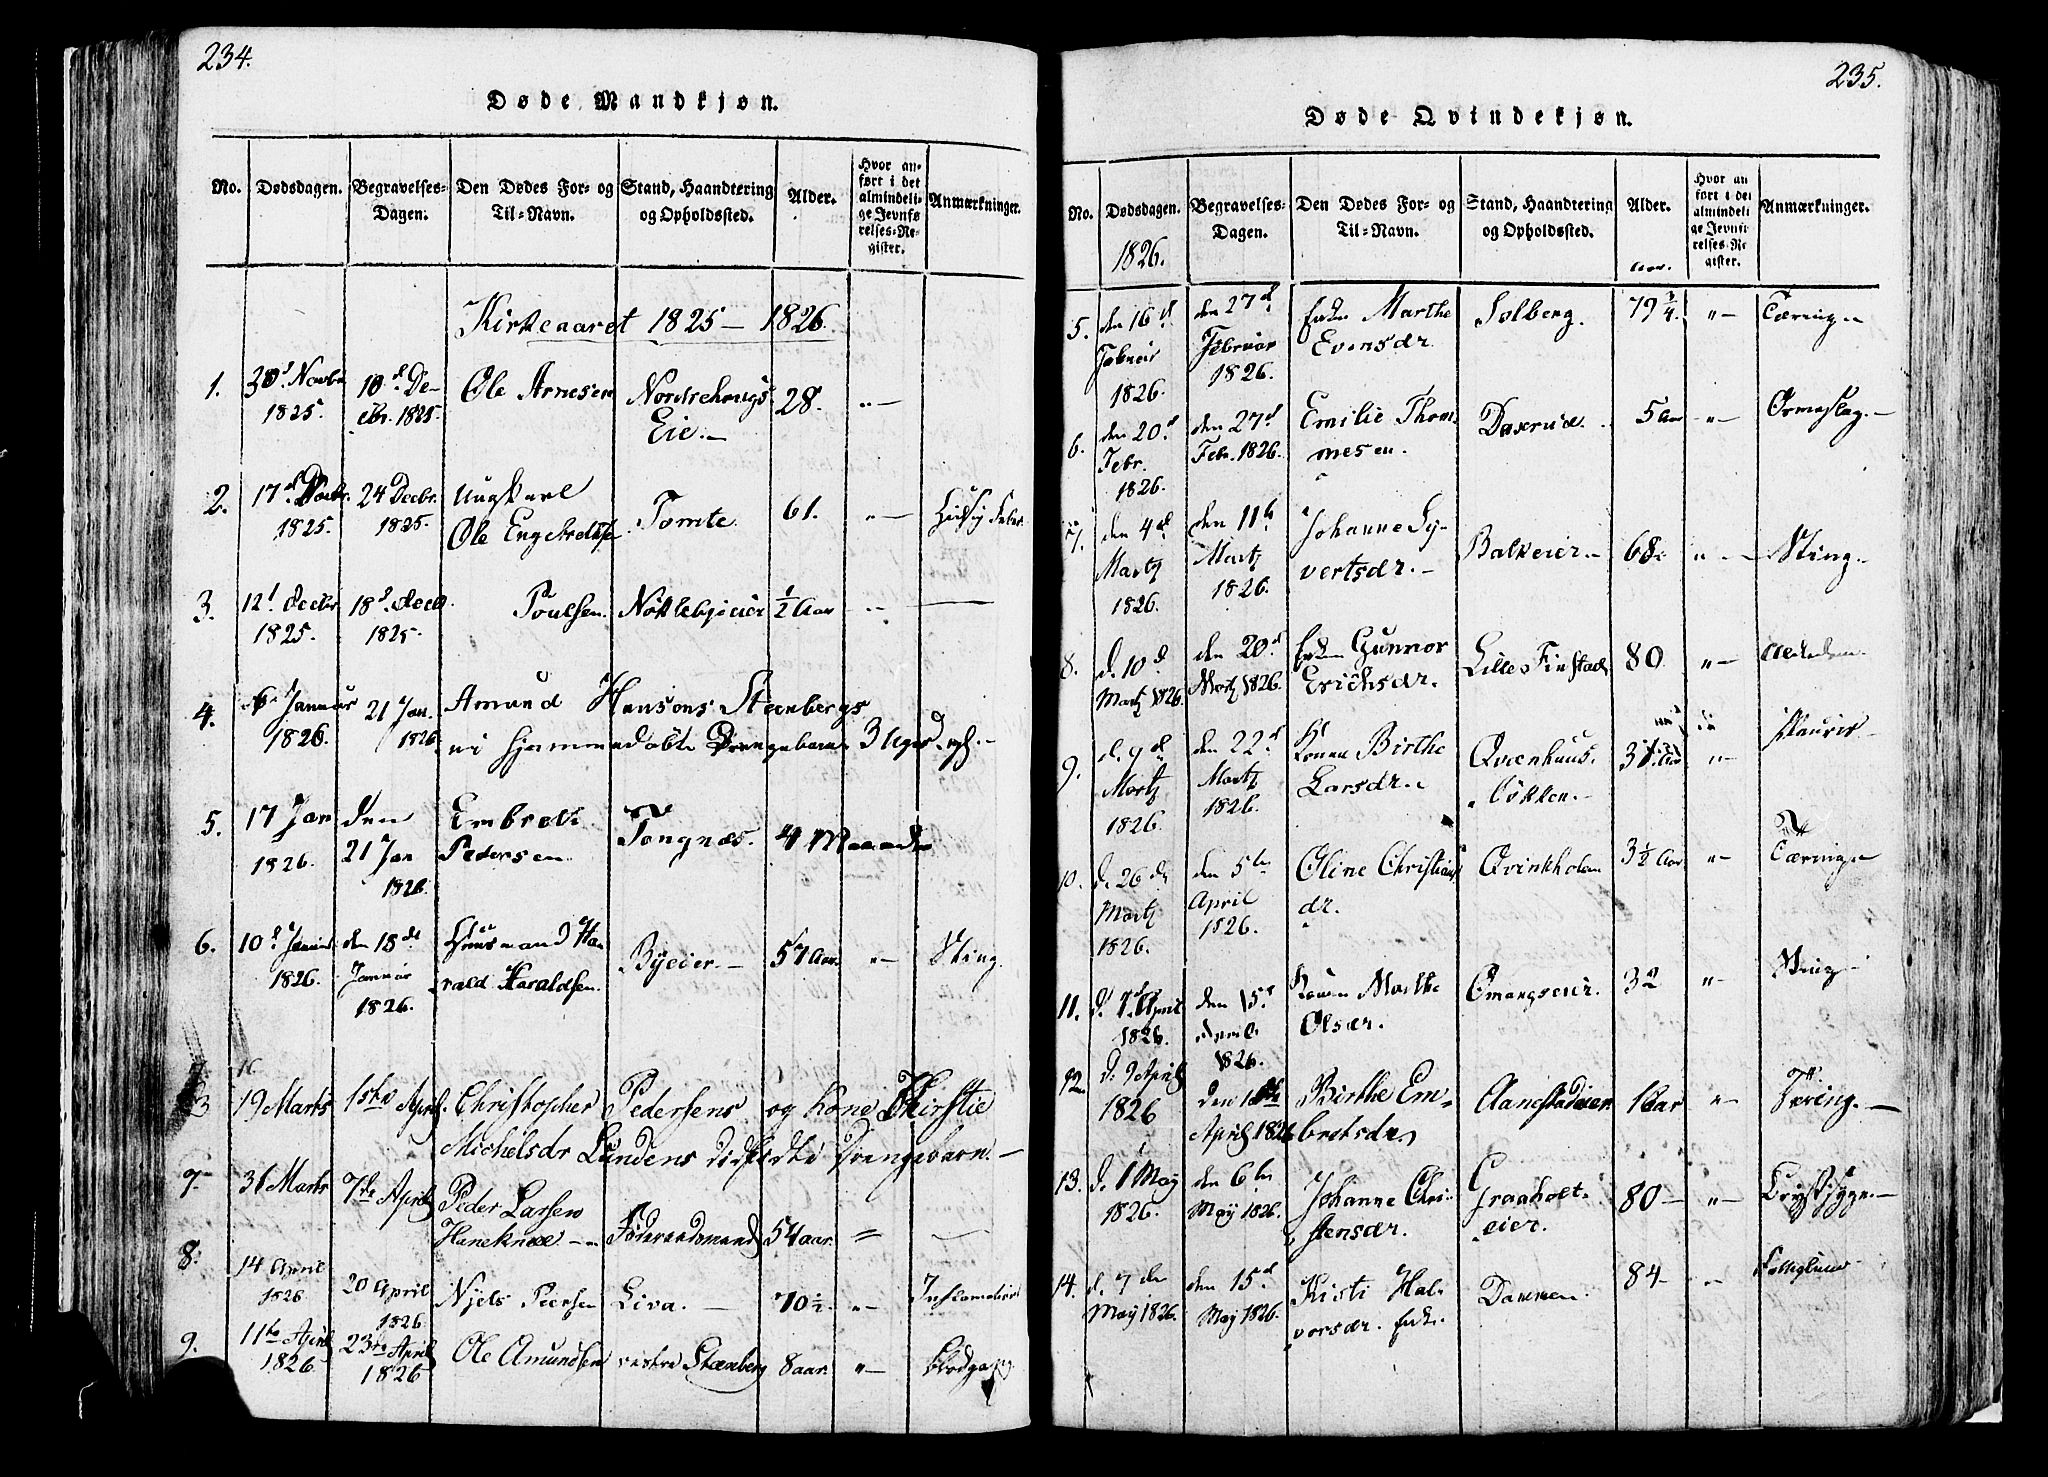 234.
Døde Mandkjøn.
No.
Dødsdagen.
Begravelses-
Dagen.
Den Dødes For- og
Til-Navn.
Stand, Haandtering
og Opholdssted.
Alder.
Hvor an-
ført i det
almindeli-
ge Jevnfø
relses-Re-
gister.
Anmærkninger.
Kirkeaaret 1825 - 1826.
1.
1825.
10d De-
cbr. 1825.
Ole Arnesen
Eie.
28.
2.
17d
1825.
24 Decbr.
1825.
Ungkarl
Ole
Tomte.
61.
3.
12d Decbr
1825.
18d Decb.
1825.
Poulsen.
Nøklebyeier
1/2 Aar
4.
6 Januar
1826.
21 Jan.
1826
Amund Hansons Steenbergs
hjemmedøbte Drengebarn 3 Uger
5.
17 Jan
1826.
den
21 Jan
1826.
Embret
Pedersen
Tongnæs.
4 Maaneder
6.
10d
1826.
den 18de
Januar
1826.
Huusmand Ha-
rald Haraldsen.
Byeier.
57 Aar.
Sting.
19 Marts
1ste April
Christopher Pedersens og Kone Kirstie
Michelsdr Lundens Drengebarn.
7.
31 Marts
7de April
Peder Larsen
Føderaadsmand
54 aar.
8.
14 April
1826
20 April
1826.
Niels Peersen
Liva.
70 1/2
9.
11te April
1826.
23de April
1826
Ole Amundsen
vestre Stenberg
8 aar.
Blodgang
235.
Døde Qvindekjøn.
No.
Dødsdagen.
1826.
Begravelses-
Dagen.
Den Dødes For- og
Til-Navn.
Stand, Haandtering
og Opholdssted.
Alder.
Aar.
Hvor an
ført i det
almindeli
ge Jevnfø
relses-Re
gister.
Anmærkninger.
5.
den 16d
Februar
1826.
den 27d
Februar
1826.
Enken Marthe
Evensdr
Solberg.
79 3/4.
Tæring
6.
den 20d
Febr.
1826.
den 27d
Febr. 1826.
Emilie Thom
mesen.
5 Aar
Ormeslag.
7.
den 4d
Martz
1826.
den 11te
Martz
1826.
Johanne Sy-
vertsdr.
Balkeeier
68.
Sting.
8.
d. 10d
Martz 1826.
den 20d
Martz 1826.
Enken Gunnor
Erichsdr.
Lille Finstad
80
9.
d. 9d
Martz
1826.
den 22d
Martz
1826.
Konen Birthe
Larsdr.
Qvenhuus-
løkken.
10.
d. 26de
Martz
1826.
den 5te
April
1826.
Oline Christians
dr.
Qvinkholen
3 1/2 Aar
Tæring
11.
April
1826.
den 15d
April
1826.
Konen Marthe
Olsdr.
Omangseier.
32
Sting
12.
d. 9 April
1826
den
April 1826
Birthe Em-
bretsdr
1 Aar
Tæring.
13.
d. 1 May
1826.
den 6te
May 1826.
Johanne Chri-
stensdr.
Graaholt-
eier.
80
Brystsyge.
14.
d. 7de
May 1826.
den 15d
May 1826.
Kisti Hal-
vorsdr. Enke.
Dammen.
84